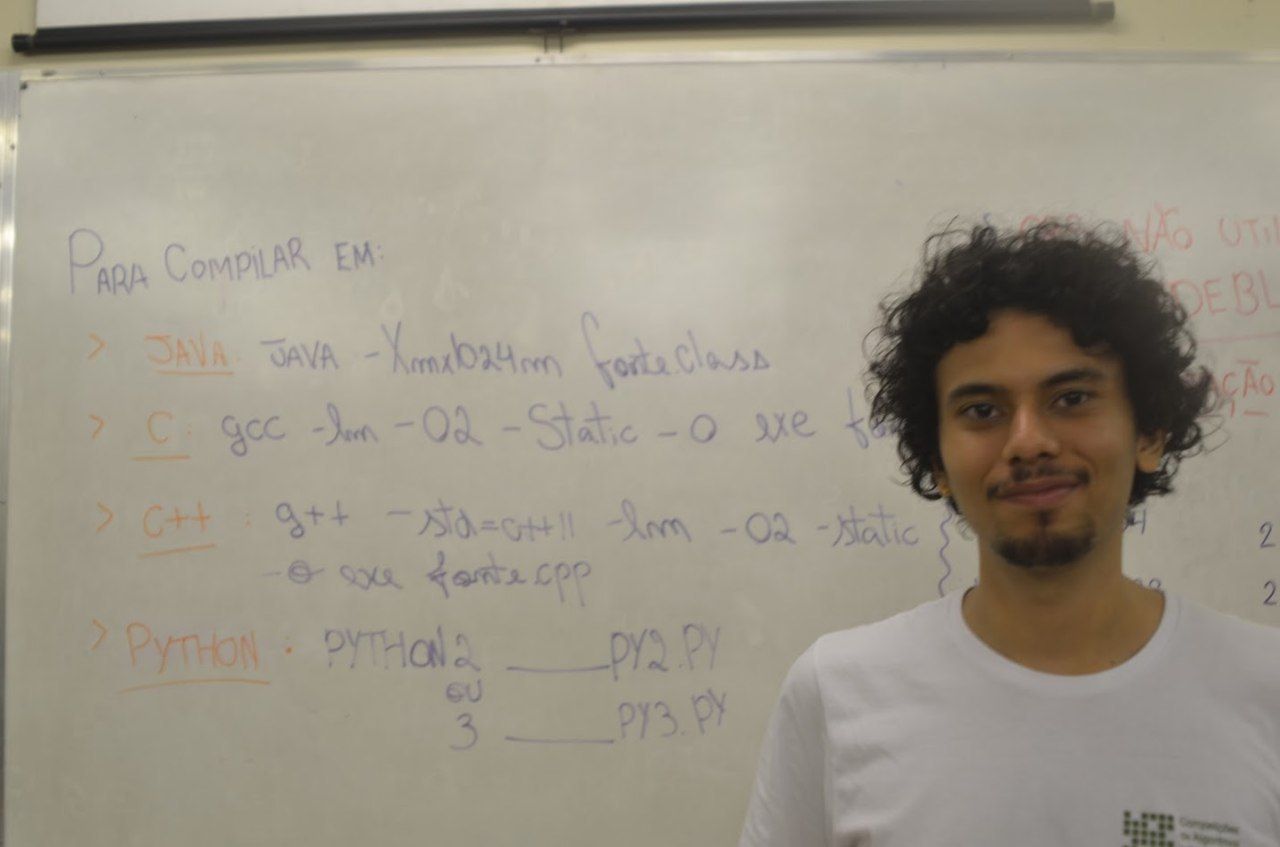 PARA COMPILAR EM:
> JAVA: JAVA -Xmx1024m fonte.Class
> C: gcc -lm -O2 -Static -O exe
> C++ : g++ -std=c++11 -lm -O2 -static {
-O exe fonte.cpp
> PYTHON: PYTHON2 ______PY2.PY
OU
3 ______PY3.PY
NÃO UTIL
DEBL
AÇÃO
2
2
Competições